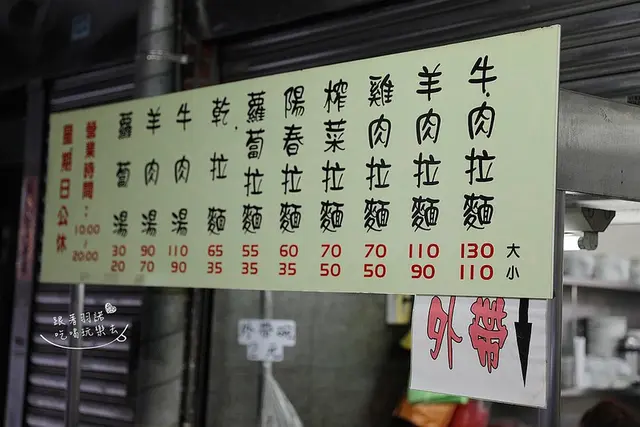 牛肉拉麵 130 110
羊肉拉麵 110 90
雞肉拉麵 70 50
榨菜拉麵 70 50
陽春拉麵 60 35
蘿蔔拉麵 55 35
乾拉麵 65 35
牛肉湯 110 90
羊肉湯 90 70
蘿蔔湯 30 20
大
小
營業時間：10:00~20:00
星期日公休
外帶
外帶碗
跟著羽諾
吃喝玩樂去